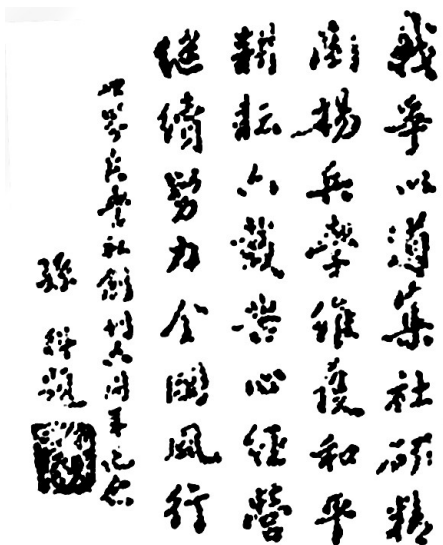 戰爭以道集社研精
闡揚兵學維護和平
耕耘六載苦心經營
继續努力全國風行
世界兵學社創刊六周年紀念
孫科題